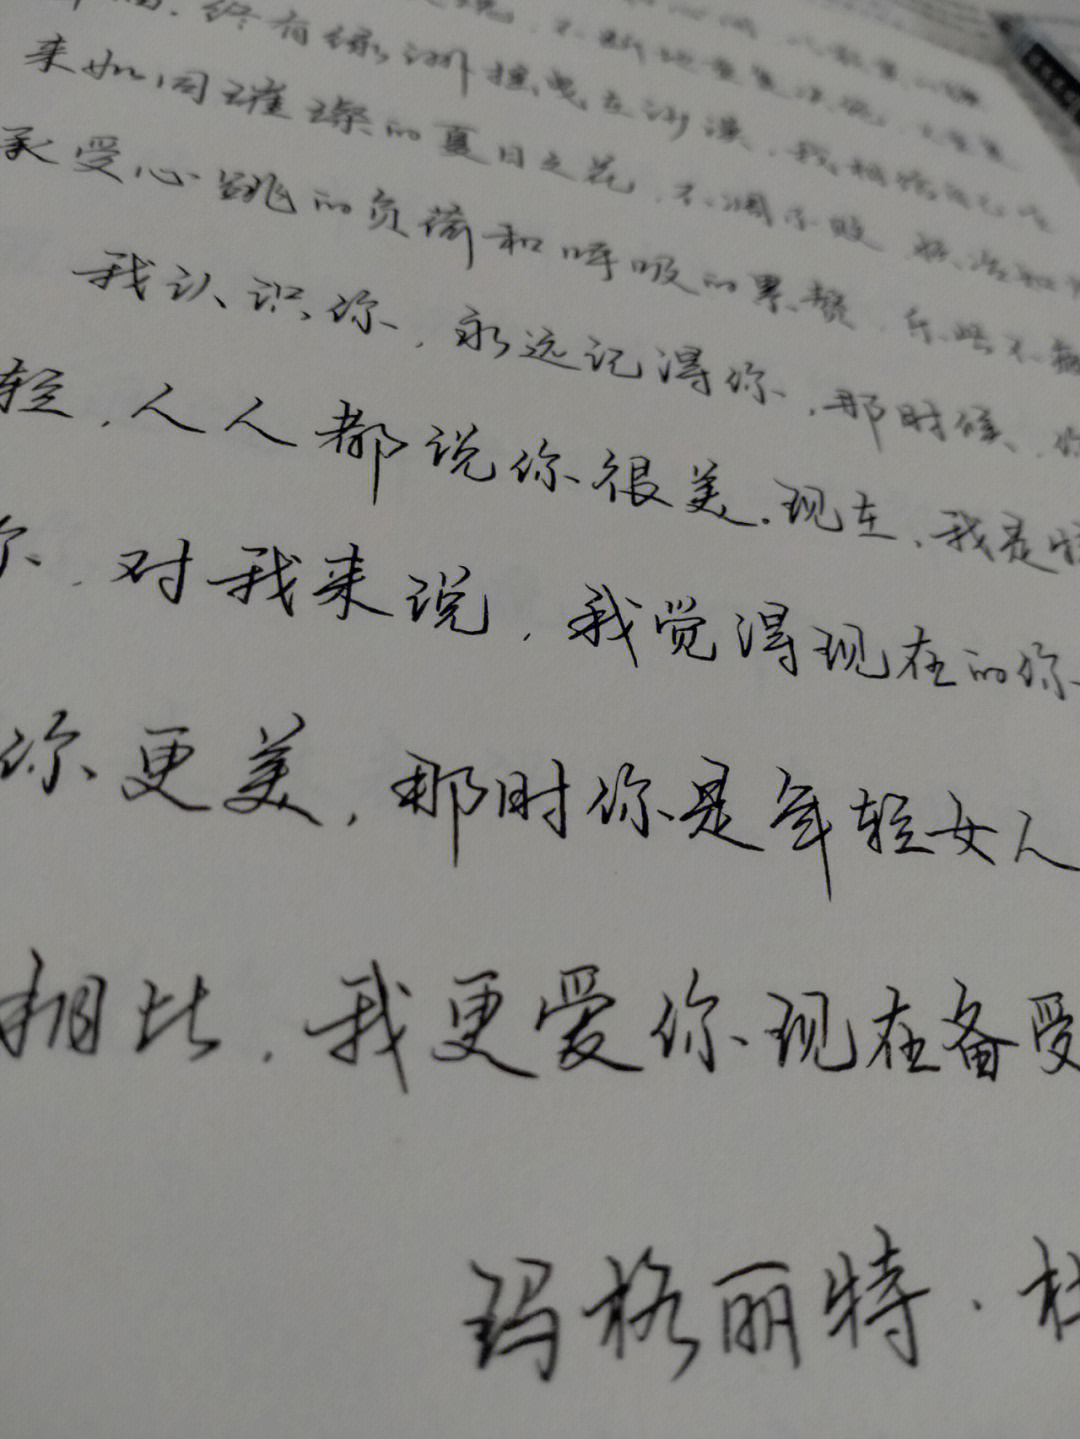 终有绿洲摇曳在沙漠，我相信自己
来如同璀璨的夏日之花，不凋不败
承受心跳的负荷和呼吸的累赘，乐此不
我认识你，永远记得你，那时候、你
轻，人人都说你很美．现在，我是
你，对我来说，我觉得现在的你
你更美，那时你是年轻女人
相比，我更爱你现在备受
玛格丽特·杜